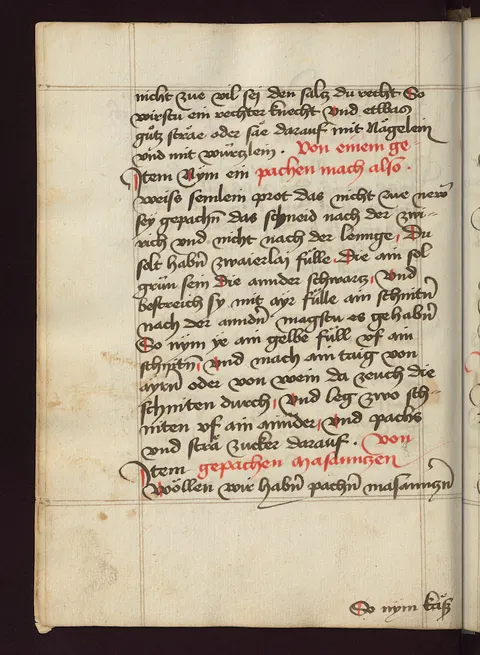 nicht zue vil sei den saltz du recht So
wirstu ein rechter knecht Vnd etbas
gütz sträe oder säe darauf mit Nägelein
vnd mit würtzlein . Von einem ge
Item Nym ein pachen mach also .
weiss semlein prot das nicht zue new
sey gepachn das schneid nach der zwi-
rich vnd nicht nach der lennge , Du
solt habn zwaierlai fülle , Die ain sol
grün sein Die annder schwartz , Vnd
bestreich sy mit ayr fülle ain schnitn
nach der anndn magstu es gehabn
So nym ye ain gelbe füll vf ain
schnitn , Vnd mach ain taig von
ayrn oder von wein da zeuch die
schniten durch , Vnd leg zwo sch-
niten vf ain ainder , Vnd pachs
vnd strä zucker darauf . Von
Item gepachen Masanntzen
Wöllen wir habn pachn masanntzn
So nym